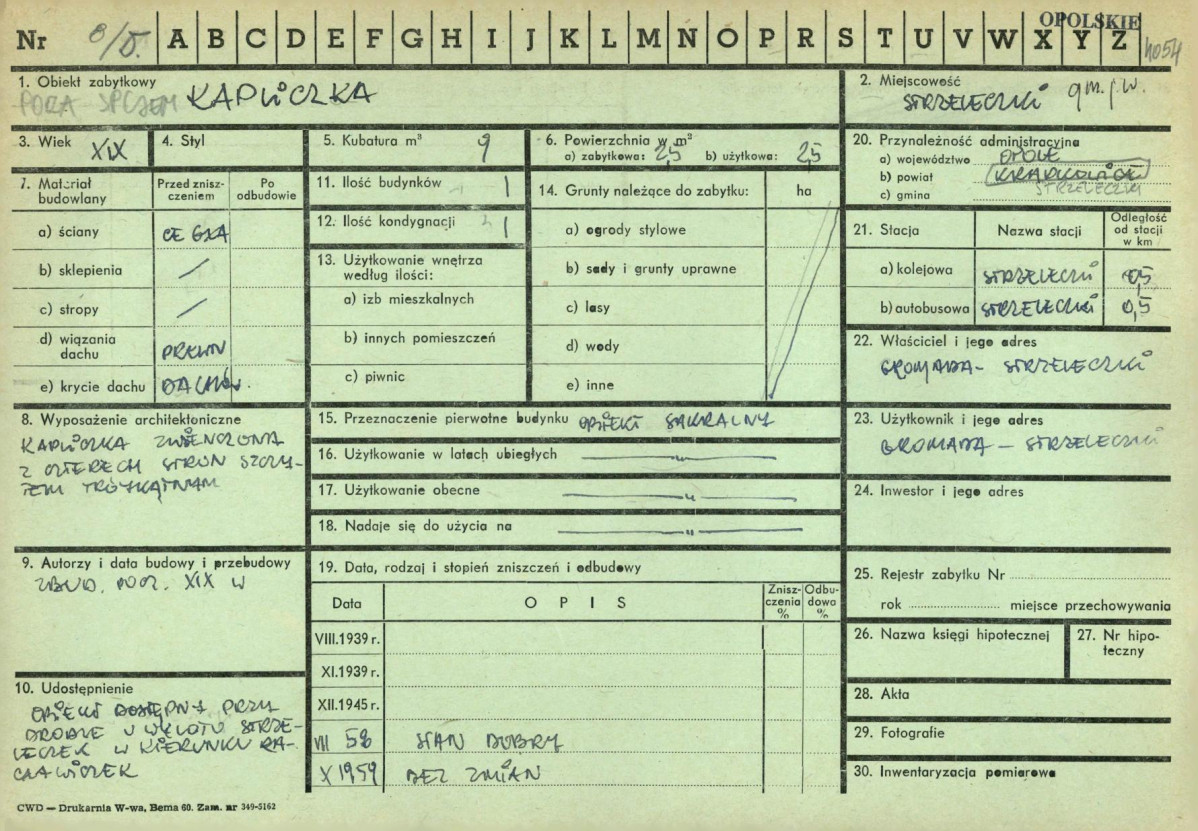 OPOLSKIE
Nr 8/5. A B C D E F G H I J K L M N O P R S T U V W X Y Z 4054
1. Obiekt zabytkowy
POZA SPISEM KAPLICZKA
2. Miejscowość
STRZELECZKI gm. j.w.
3. Wiek XIX
4. Styl
5. Kubatura m³ 9
6. Powierzchnia w m²
a) zabytkowa: 2,5 b) użytkowa: 2,5
20. Przynależność administracyjna
a) województwo OPOLE
b) powiat KRAPKOWICE
c) gmina STRZELECZKI
7. Materiał budowlany
Przed zniszczeniem
Po odbudowie
a) ściany CEGŁA
b) sklepienia /
c) stropy /
d) wiązania dachu DREWN
e) krycie dachu DACHÓW.
11. Ilość budynków 1
12. Ilość kondygnacji 1
13. Użytkowanie wnętrza według ilości:
a) izb mieszkalnych
b) innych pomieszczeń
c) piwnic
14. Grunty należące do zabytku: ha
a) ogrody stylowe
b) sady i grunty uprawne
c) lasy
d) wody
e) inne
21. Stacja Nazwa stacji Odległość od stacji w km
a) kolejowa STRZELECZKI 0,5
b) autobusowa STRZELECZKI 0,5
22. Właściciel i jego adres
GROMADA - STRZELECZKI
8. Wyposażenie architektoniczne
KAPLICZKA ZWIEŃCZONA
Z CZTERECH STRON SZCZY-
TEM TRÓJKĄTNYM
15. Przeznaczenie pierwotne budynku OBIEKT SAKRALNY
16. Użytkowanie w latach ubiegłych — " —
17. Użytkowanie obecne — " —
18. Nadaje się do użycia na — " —
23. Użytkownik i jego adres
GROMADA - STRZELECZKI
24. Inwestor i jego adres
9. Autorzy i data budowy i przebudowy
ZBUD. POCZ. XIX W
19. Data, rodzaj i stopień zniszczeń i odbudowy
Data OPIS Zniszczenia % Odbudowa %
VIII.1939 r.
XI.1939 r.
XII.1945 r.
VIII 58 STAN DOBRY
X 1959 BEZ ZMIAN
25. Rejestr zabytku Nr
rok miejsce przechowywania
26. Nazwa księgi hipotecznej
27. Nr hipoteczny
28. Akta
29. Fotografie
30. Inwentaryzacja pomiarowa
10. Udostępnienie
OBIEKT DOSTĘPNY PRZY
DRODZE U WYLOTU STRZE-
LECZEK W KIERUNKU RA-
CŁAWICZEK
CWD — Drukarnia W-wa, Bema 60. Zam. nr 349-5162